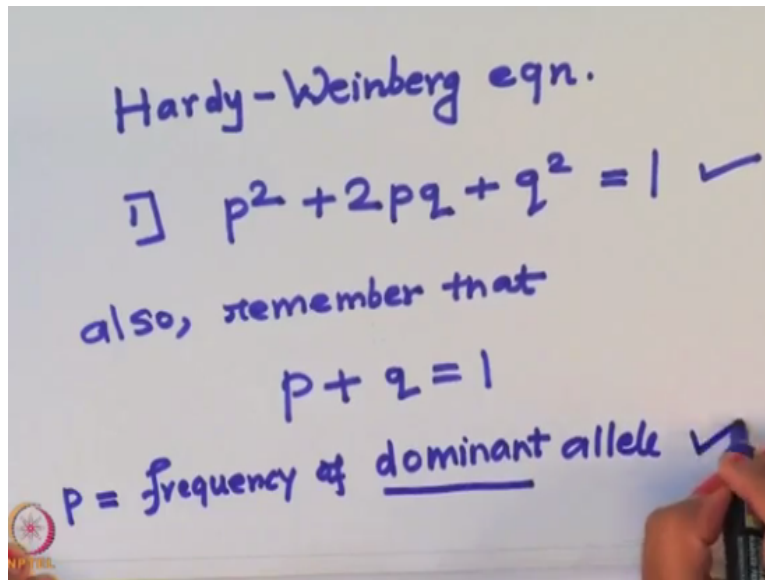 Hardy-Weinberg eqn.
1] p² + 2pq + q² = 1 ✓
also, remember that
p + q = 1
P = frequency of dominant allele ✓
NPTEL